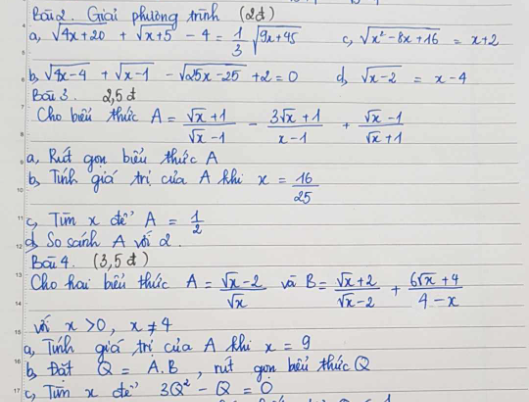 Bài 2. Giải phương trình (2đ)
a, √(4x+20) + √(x+5) - 4 = 1/3 √(9x+45) c, √(x²-8x+16) = x+2
b, √(4x-4) + √(x-1) - √(25x-25) + 2 = 0 d, √(x-2) = x-4
Bài 3. 2,5đ
Cho biểu thức A = (√x+1)/(√x-1) - (3√x+1)/(x-1) + (√x-1)/(√x+1)
a, Rút gọn biểu thức A
b, Tính giá trị của A khi x = 16/25
c, Tìm x để A = 1/2
d, So sánh A với 2.
Bài 4. (3,5đ)
Cho hai biểu thức A = (√x-2)/√x và B = (√x+2)/(√x-2) + (6√x+4)/(4-x)
với x>0, x≠4
a, Tính giá trị của A khi x = 9
b, Đặt Q = A.B, rút gọn biểu thức Q
c, Tìm x để 3Q² - Q = 0